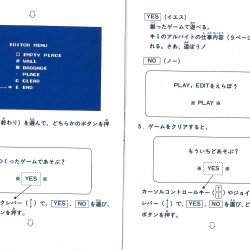 EDITOR MENU
EMPTY PLACE
WALL
BAGGAGE
PLACE
C CLEAR
E END
終わり) を選んで、どちらかのボタンを押
つくったゲームであそぶ?
※ YES ※
クレバー( )で、YES、NOを選び、
ンを押す。
YES (イエス)
創ったゲームで遊べる。
キミのアルバイトの仕事内容 (9ページ
れる。さあ、遊ぼう!
NO (ノー)
PLAY, EDITをえらぼう
※ PLAY ※
5. ゲームをクリアすると、
もういちどあそぶ?
※ YES ※
カーソルコントロールキー( )やジョイ
レバー( )で、YES、NOを選び、ど
ボタンを押す。